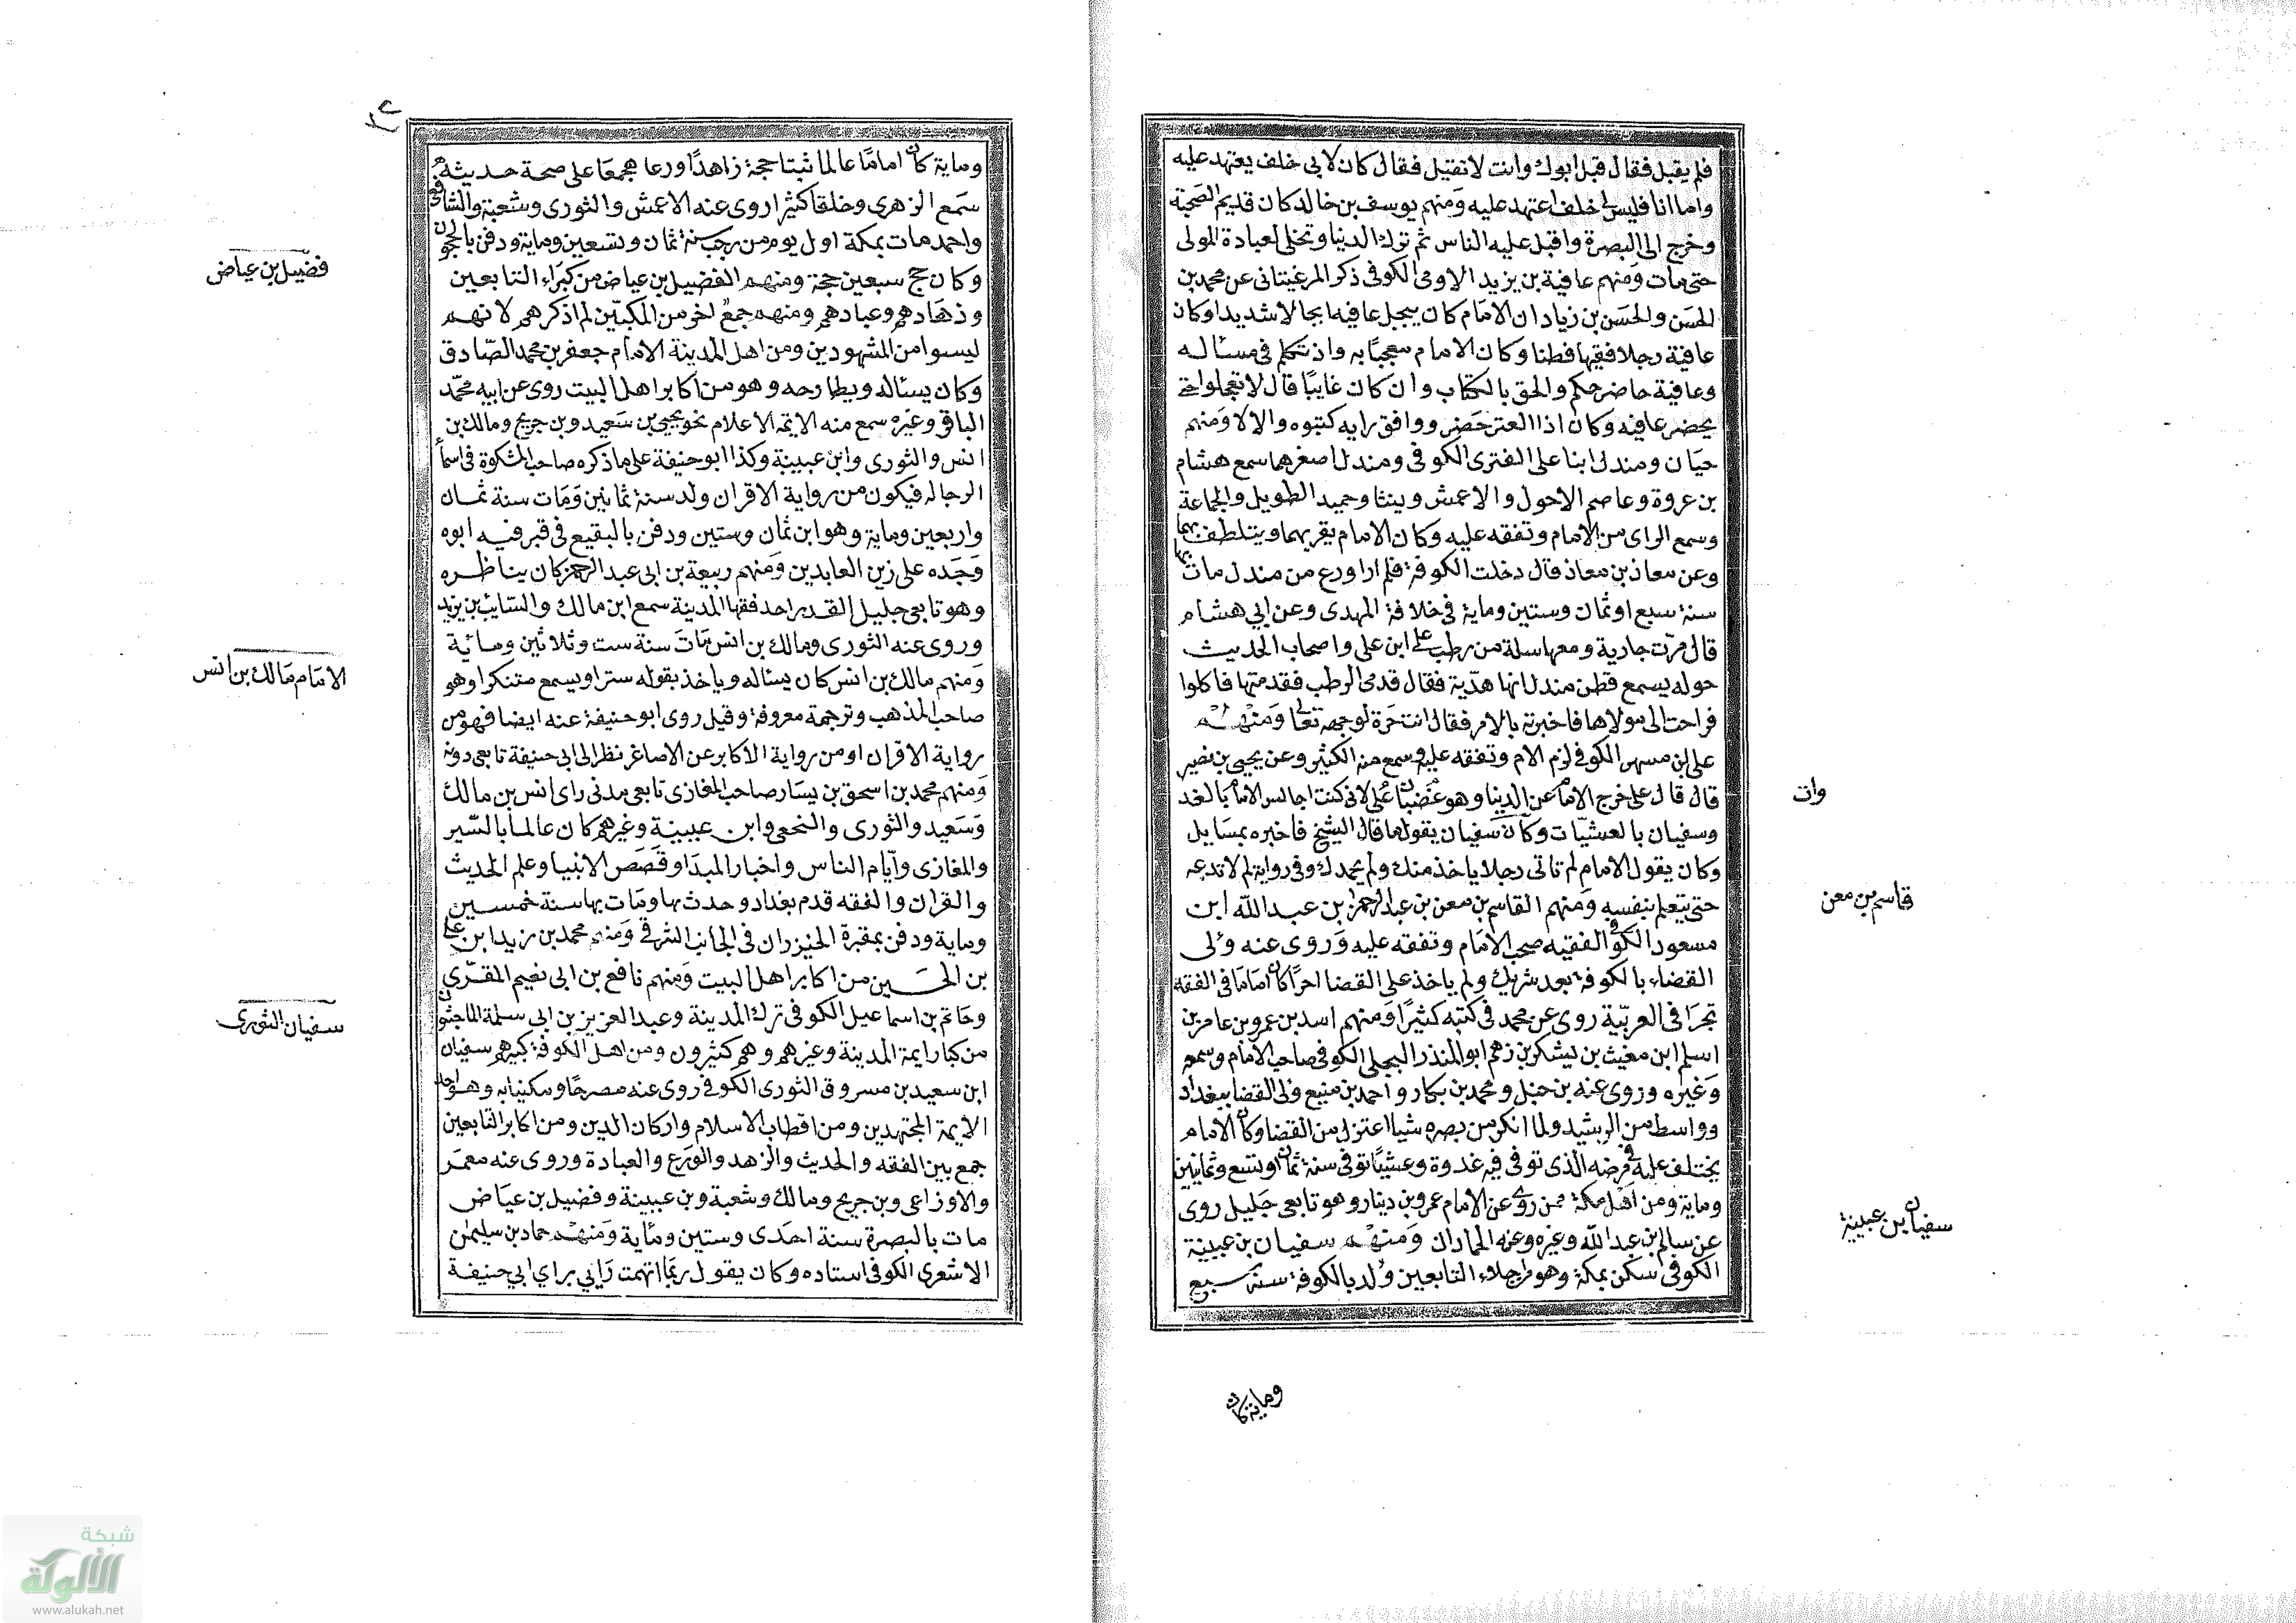 فلم يقبل فقال قبل ابوك وانت لا تقبل فقال كان لابى خلف يعتهد عليه
واما انا فليس لى خلف اعتهد عليه ومنهم يوسف بن خالد كان قديم الصحبة
وخرج الى البصرة واقبل عليه الناس ثم ترك الدنيا وتخلى لعبادة المولى
حتى مات ومنهم عافية بن يزيد الاودى الكوفى ذكر المرغينانى عن محمد بن
الحسن والحسن بن زياد ان الامام كان يبجل عافيه ابجالا شديدا وكان
عافية رجلا فقيها فطنا وكان الامام معجبا به واذ تكلم فى مسئاله
وعافية حاضر حكم والحق بالكتاب وان كان غايبا قال لا تعجلوا حتى
يحضر عافيه وكان اذا حضر ووافق رايه كتبوه والا لا ومنهم
حيان ومندل ابنا على الكوفى ومندل اصغرهما سمع هشام
بن عروة وعاصم الاحول والاعمش وحميد الطويل والجماعة
وسمع الراى من الامام وتفقه عليه وكان الامام يقربهما ويتلطف بهما
وعن معاذ بن معاذ قال دخلت الكوفة فلم ار اورع من مندل مات بها
سنة سبع او ثمان وستين وماية فى خلافة المهدى وعن ابى هشام
قال مرت جارية ومعها سلة من رطب على ابن على واصحاب الحديث
حوله يسمع فظن مندل انها هدية فقال قدمى الرطب فقدمتها فاكلوا
فراحت الى مولاها فاخبرته بالامر فقال انت حرة لوجهه تعا ومنهم
على بن مسهر الكوفى لزم الام وتفقه عليه وسمع منه الكثير وعن يحيى بن نصير
قال قال على خرج الامام عن الدنيا وهو غضبان على لانى كنت اجالس الامام بالغد
وسفيان بالعشيات وكان سفيان يقول ما قال الشيخ فاخبره بمسايل
وكان يقول الامام لم تاتى رجلا ياخذ منك ولم يحمدك وفى رواية لم لا تدعه
حتى يتعلم بنفسه ومنهم القاسم بن معن بن عبد الرحمن بن عبد الله ابن
مسعود الكوفى الفقيه صحب الامام وتفقه عليه وروى عنه ولى
القضاء بالكوفة بعد شريك ولم ياخذ على القضا اجرا كان اماما فى الفقه
بحرا فى العربية روى عن محمد فى كتبه كثيرا ومنهم اسد بن عمرو بن عامر بن
اسلم ابن مغيث بن يشكر بن زهم ابو المنذر البجلى الكوفى صاحب الامام وسمعه
وغيره وروى عنه بن حنبل ومحمد بن بكار واحمد بن منيع ولى القضا ببغداد
وواسط من الرشيد ولما انكر من بصره شيا اعتزل من القضا وكان الامام
يختلف عليه فى مرضه الذى توفى فيه غدوة وعشيا توفى سنة ثمان او تسع وثمانين
وماية ومن اهل مكة ممن روى عن الامام عمرو بن دينار وهو تابعى جليل روى
عن سالم بن عبد الله وغيره وعنه الحمادان ومنهم سفيان بن عيينة
الكوفى سكن بمكة وهو من اجلاء التابعين ولد بالكوفة سنة سبع
وان
قاسم بن معن
سفيان بن عيينة
وماية كان
٢٢
وماية كان اماما عالما ثبتا حجة زاهدا ورعا مجمعا على صحة حديثه
سمع الزهرى وخلقا كثيرا روى عنه الاعمش والثورى وشعبة والشافعى
واحمد مات بمكة اول يوم من رجب سنة ثمان وتسعين وماية ودفن بالحجون
وكان حج سبعين حجة ومنهم الفضيل بن عياض من كبراء التابعين
وزهادهم وعبادهم ومنهم جمع اخر من المكيين لم اذكرهم لانهم
ليسوا من المشهودين ومن اهل المدينة الامام جعفر بن محمد الصادق
وكان يسئاله ويطارحه وهو من اكابر اهل البيت روى عن ابيه محمد
الباقر وغيره سمع منه الايمة الاعلام نحو يحيى بن سعيد وبن جريج ومالك بن
انس والثورى وابن عيينة وكذا ابو حنيفة على ما ذكره صاحب المشكوة فى اسما
الرجاله فيكون من رواية الاقران ولد سنة ثمانين ومات سنة ثمان
واربعين وماية وهو ابن ثمان وستين ودفن بالبقيع فى قبر فيه ابوه
وجده على زين العابدين ومنهم ربيعة بن ابى عبد الرحمن كان يناظره
وهو تابعى جليل القدر احد فقها المدينة سمع ابن مالك والسايب بن يزيد
وروى عنه الثورى ومالك بن انس مات سنة ست وثلاثين ومائة
ومنهم مالك بن انس كان يسئاله وياخذ بقوله سترا ويسمع متنكرا وهو
صاحب المذهب وترجمة معروفة وقيل روى ابو حنيفة عنه ايضا فهو من
رواية الاقران او من رواية الاكابر عن الاصاغر نظر الى ابى حنيفة تابعى دونه
ومنهم محمد بن اسحق بن يسار صاحب المغازى تابعى مدنى راى انس بن مالك
وسعيد والثورى والنخعى وابن عيينة وغيرهم كان عالما بالسير
والمغازى وايام الناس واخبار المبدا وقصص الانبيا وعلم الحديث
والقران والفقه قدم بغداد وحدث بها ومات بها سنة خمسين
وماية ودفن بمقبرة الخيزران فى الجانب الشرقى ومنهم محمد بن زيد ابن على
بن الحسين من اكابر اهل البيت ومنهم نافع بن ابى نعيم المقرى
وحاتم بن اسماعيل الكوفى ترك المدينة وعبد العزيز بن ابى سلمة الماجشون
من كبار ايمة المدينة وغيرهم وهم كثيرون ومن اهل الكوفة كبيرهم سفيان
ابن سعيد بن مسروق الثورى الكوفى روى عنه مصرحا ومكنيا به وهو احد
الايمة المجتهدين ومن اقطاب الاسلام واركان الدين ومن اكابر التابعين
جمع بين الفقه والحديث والزهد والورع والعبادة وروى عنه معمر
والاوزاعى وبن جريج ومالك وشعبة وبن عيينة وفضيل بن عياض
مات بالبصرة سنة احدى وستين ومأية ومنهم حماد بن سليمن
الاشعرى الكوفى استاده وكان يقول ربما اتهمت رايى براى ابى حنيفة
فضيل بن عياض
الامام مالك بن انس
سفيان الثورى
شبكة
الألوكة
www.alukah.net